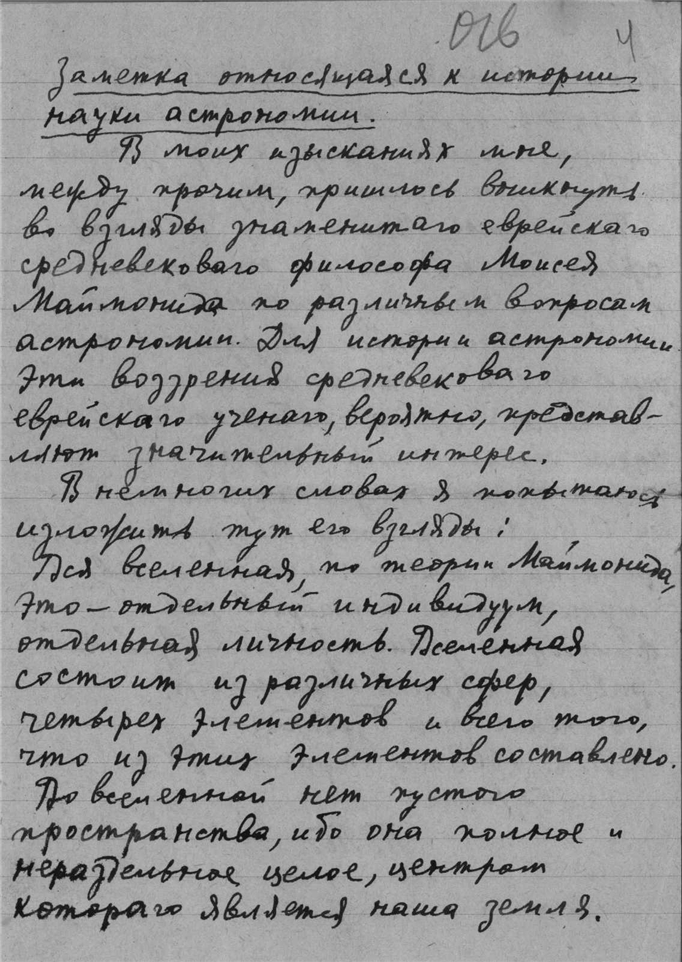 4
Заметка относящаяся к истории
науки астрономии.
В моих изысканиях мне,
между прочим, пришлось вникнуть
во взгляды знаменитаго еврейскаго
средневековаго философа Моисея
Маймонида по различным вопросам
астрономии. Для истории астрономии
эти воззрения средневековаго
еврейскаго ученаго, вероятно, представ-
ляют значительный интерес.
В немногих словах я попытаюсь
изложить тут его взгляды:
Вся вселенная, по теории Маймонида,
это – отдельный индивидуум,
отдельная личность. Вселенная
состоит из различных сфер,
четырех элементов и всего того,
что из этих элементов составлено.
Во вселенной нет пустого
пространства, ибо она полное и
нераздельное целое, центром
котораго является наша земля.